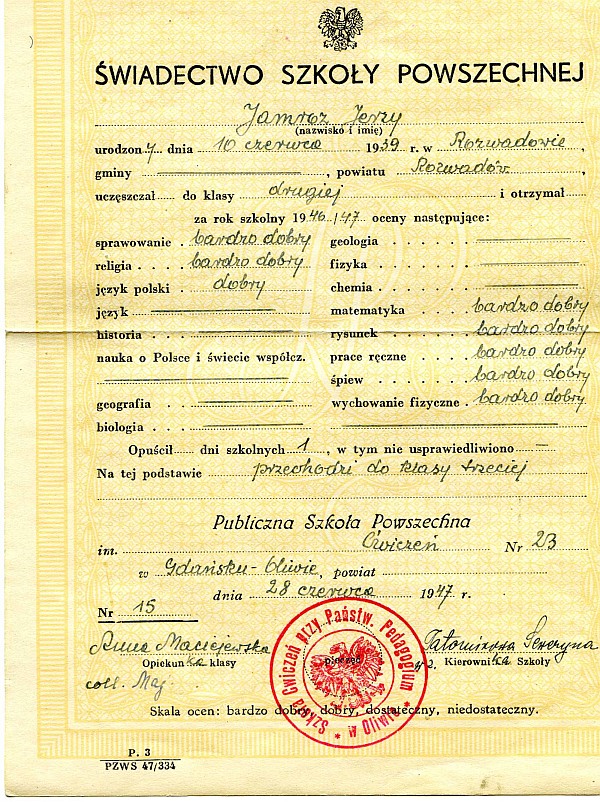 ŚWIADECTWO SZKOŁY POWSZECHNEJ
Jamroz Jerzy
(nazwisko i imię)
urodzony dnia 10 czerwca 1939 r. w Rozwadowie,
gminy , powiatu Rozwadów,
uczęszczał do klasy drugiej i otrzymał
za rok szkolny 1946/47 oceny następujące:
sprawowanie bardzo dobry geologia
religia bardzo dobry fizyka
język polski dobry chemia
język matematyka bardzo dobry
historia rysunek bardzo dobry
nauka o Polsce i świecie współcz. prace ręczne bardzo dobry
śpiew bardzo dobry
geografia wychowanie fizyczne bardzo dobry
biologia
Opuścił dni szkolnych 1, w tym nie usprawiedliwiono —
Na tej podstawie przechodzi do klasy trzeciej
Publiczna Szkoła Powszechna
im. Ćwiczeń Nr 23
w Gdańsku-Oliwie, powiat
dnia 28 czerwca 1947 r.
Nr 15
Anna Maciejewska
Opiekunka klasy pieczęć Kierowniczka Szkoły
coll. Maj.
Szkoła Ćwiczeń przy Państw. Pedagogium w Oliwie
Skala ocen: bardzo dobry, dobry, dostateczny, niedostateczny.
P. 3
PZWS 47/334